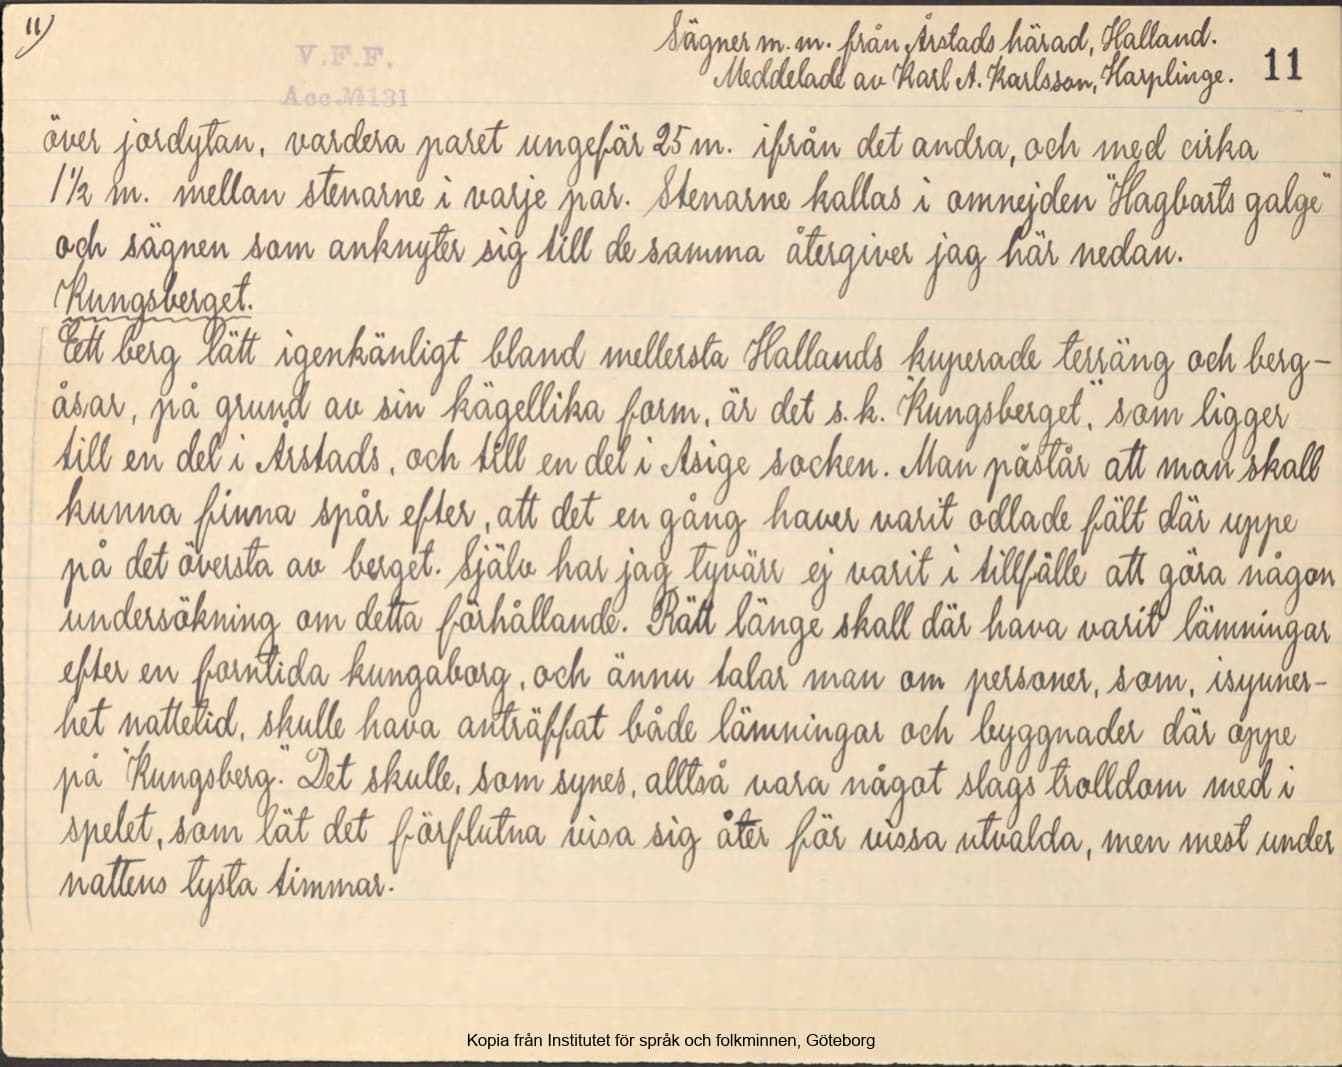 11)
Sägner m.m. från Årstads härad, Halland.
V.F.F.
Meddelade av Karl A. Karlsson, Harplinge.
11
Acc. № 131
över jordytan, vardera paret ungefär 25 m. ifrån det andra, och med cirka
1½ m. mellan stenarne i varje par. Stenarne kallas i omnejden "Hagbarts galge"
och sägnen som anknyter sig till de samma återgiver jag här nedan.
Kungsberget.
Ett berg lätt igenkänligt bland mellersta Hallands kuperade terräng och berg-
åsar, på grund av sin kägellika form, är det s.k. "Kungsberget", som ligger
till en del i Årstads, och till en del i Asige socken. Man påstår att man skall
kunna finna spår efter, att det en gång haver varit odlade fält där uppe
på det översta av berget. Själv har jag tyvärr ej varit i tillfälle att göra någon
undersökning om detta förhållande. Rätt länge skall där hava varit lämningar
efter en forntida kungaborg, och ännu talar man om personer, som, isynner-
het nattetid, skulle hava anträffat både lämningar och byggnader där oppe
på "Kungsberg". Det skulle, som synes, alltså vara något slags trolldom med i
spelet, som lät det förflutna visa sig åter för vissa utvalda, men mest under
nattens tysta timmar.
Kopia från Institutet för språk och folkminnen, Göteborg